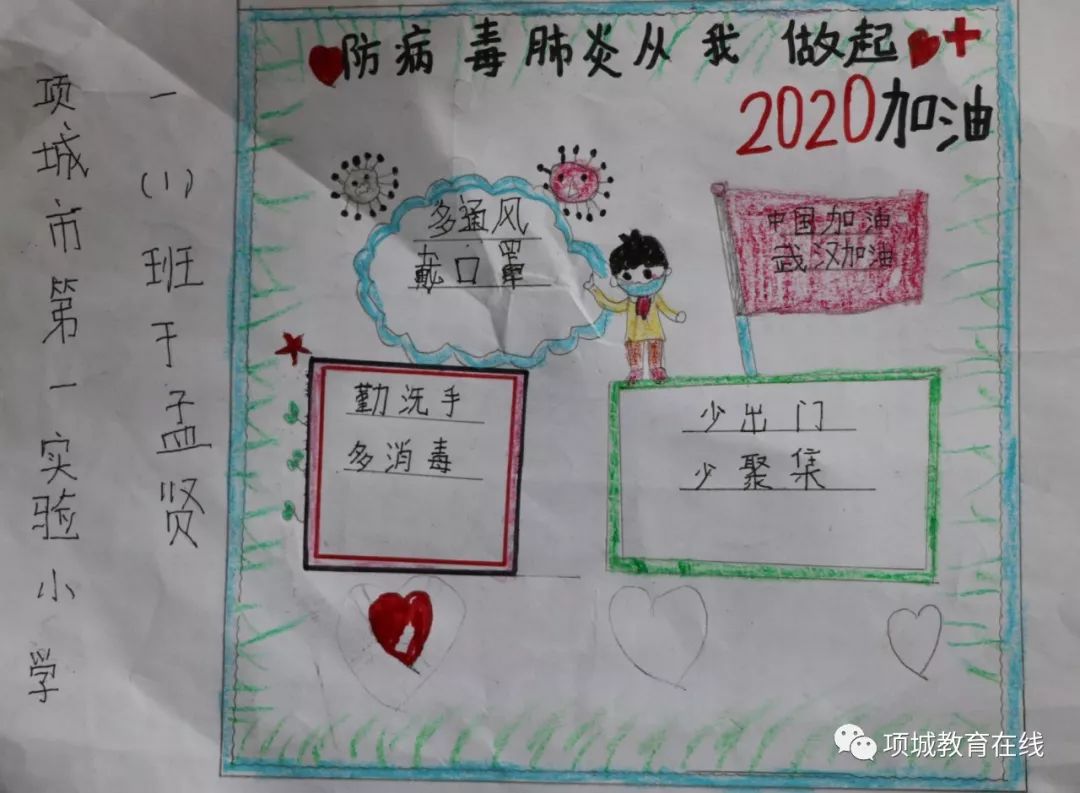 项城市第一实验小学
一(1)班于孟贤
防病毒肺炎从我做起
2020加油
多通风
戴口罩
中国加油
武汉加油
勤洗手
多消毒
少出门
少聚集
项城教育在线